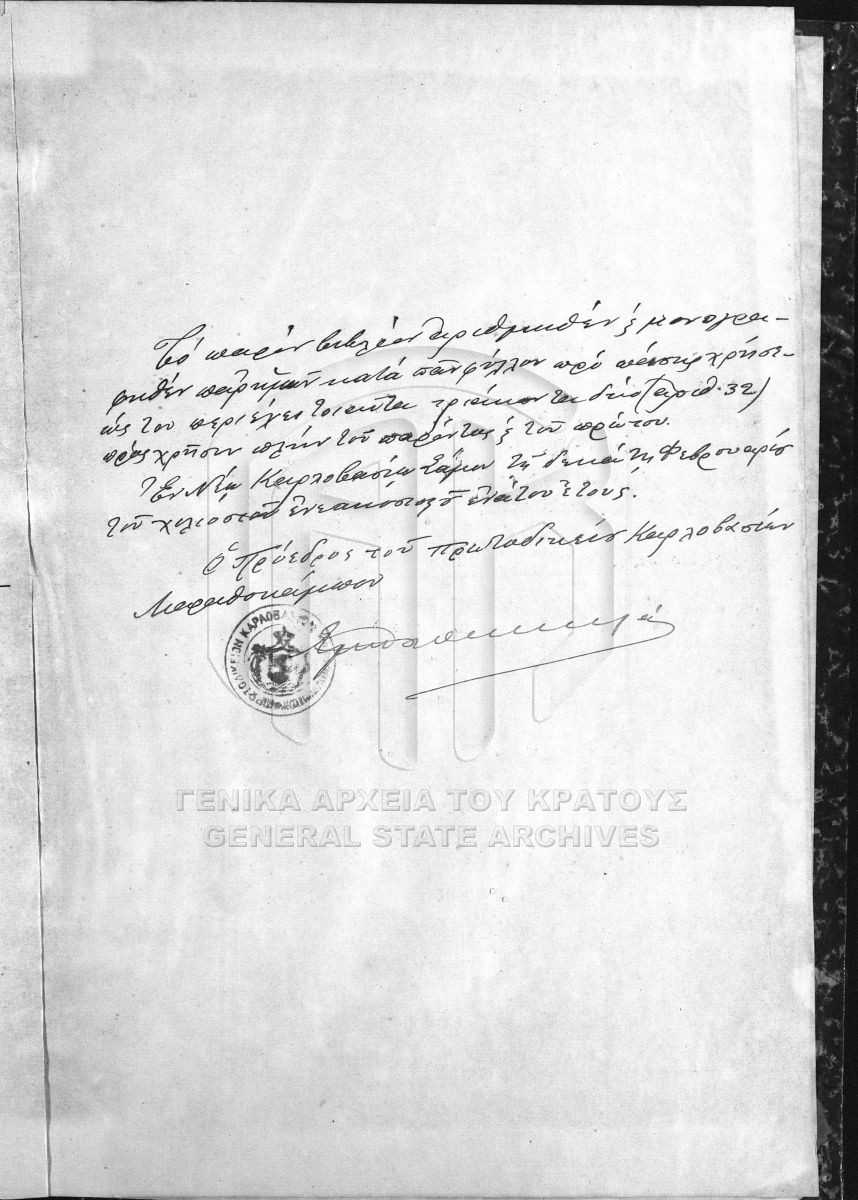 Τὸ παρὸν βιβλίον ἀριθμηθὲν ϗ μονογρα-
φηθὲν παρ' ἡμῶν κατὰ πᾶν φύλλον πρὸ πάσης χρήσε-
ώς του περιέχει τοιαῦτα τριάκοντα δύο (ἀριθ. 32)
πρὸς χρῆσιν πλὴν τοῦ παρόντος ϗ τοῦ πρώτου.
Ἐν Νέῳ Καρλοβασίῳ Σάμου τῇ δεκάτῃ Φεβρουαρίου
τοῦ χιλιοστοῦ ἐννεακοσιοστοῦ ἐνάτου ἔτους.
Ὁ Πρόεδρος τοῦ Πρωτοδικείου Καρλοβασίων
Μαραθοκάμπου
ΠΡΩΤΟΔΙΚΕΙΟΝ ΚΑΡΛΟΒΑΣΙΩΝ
ΓΕΝΙΚΑ ΑΡΧΕΙΑ ΤΟΥ ΚΡΑΤΟΥΣ
GENERAL STATE ARCHIVES